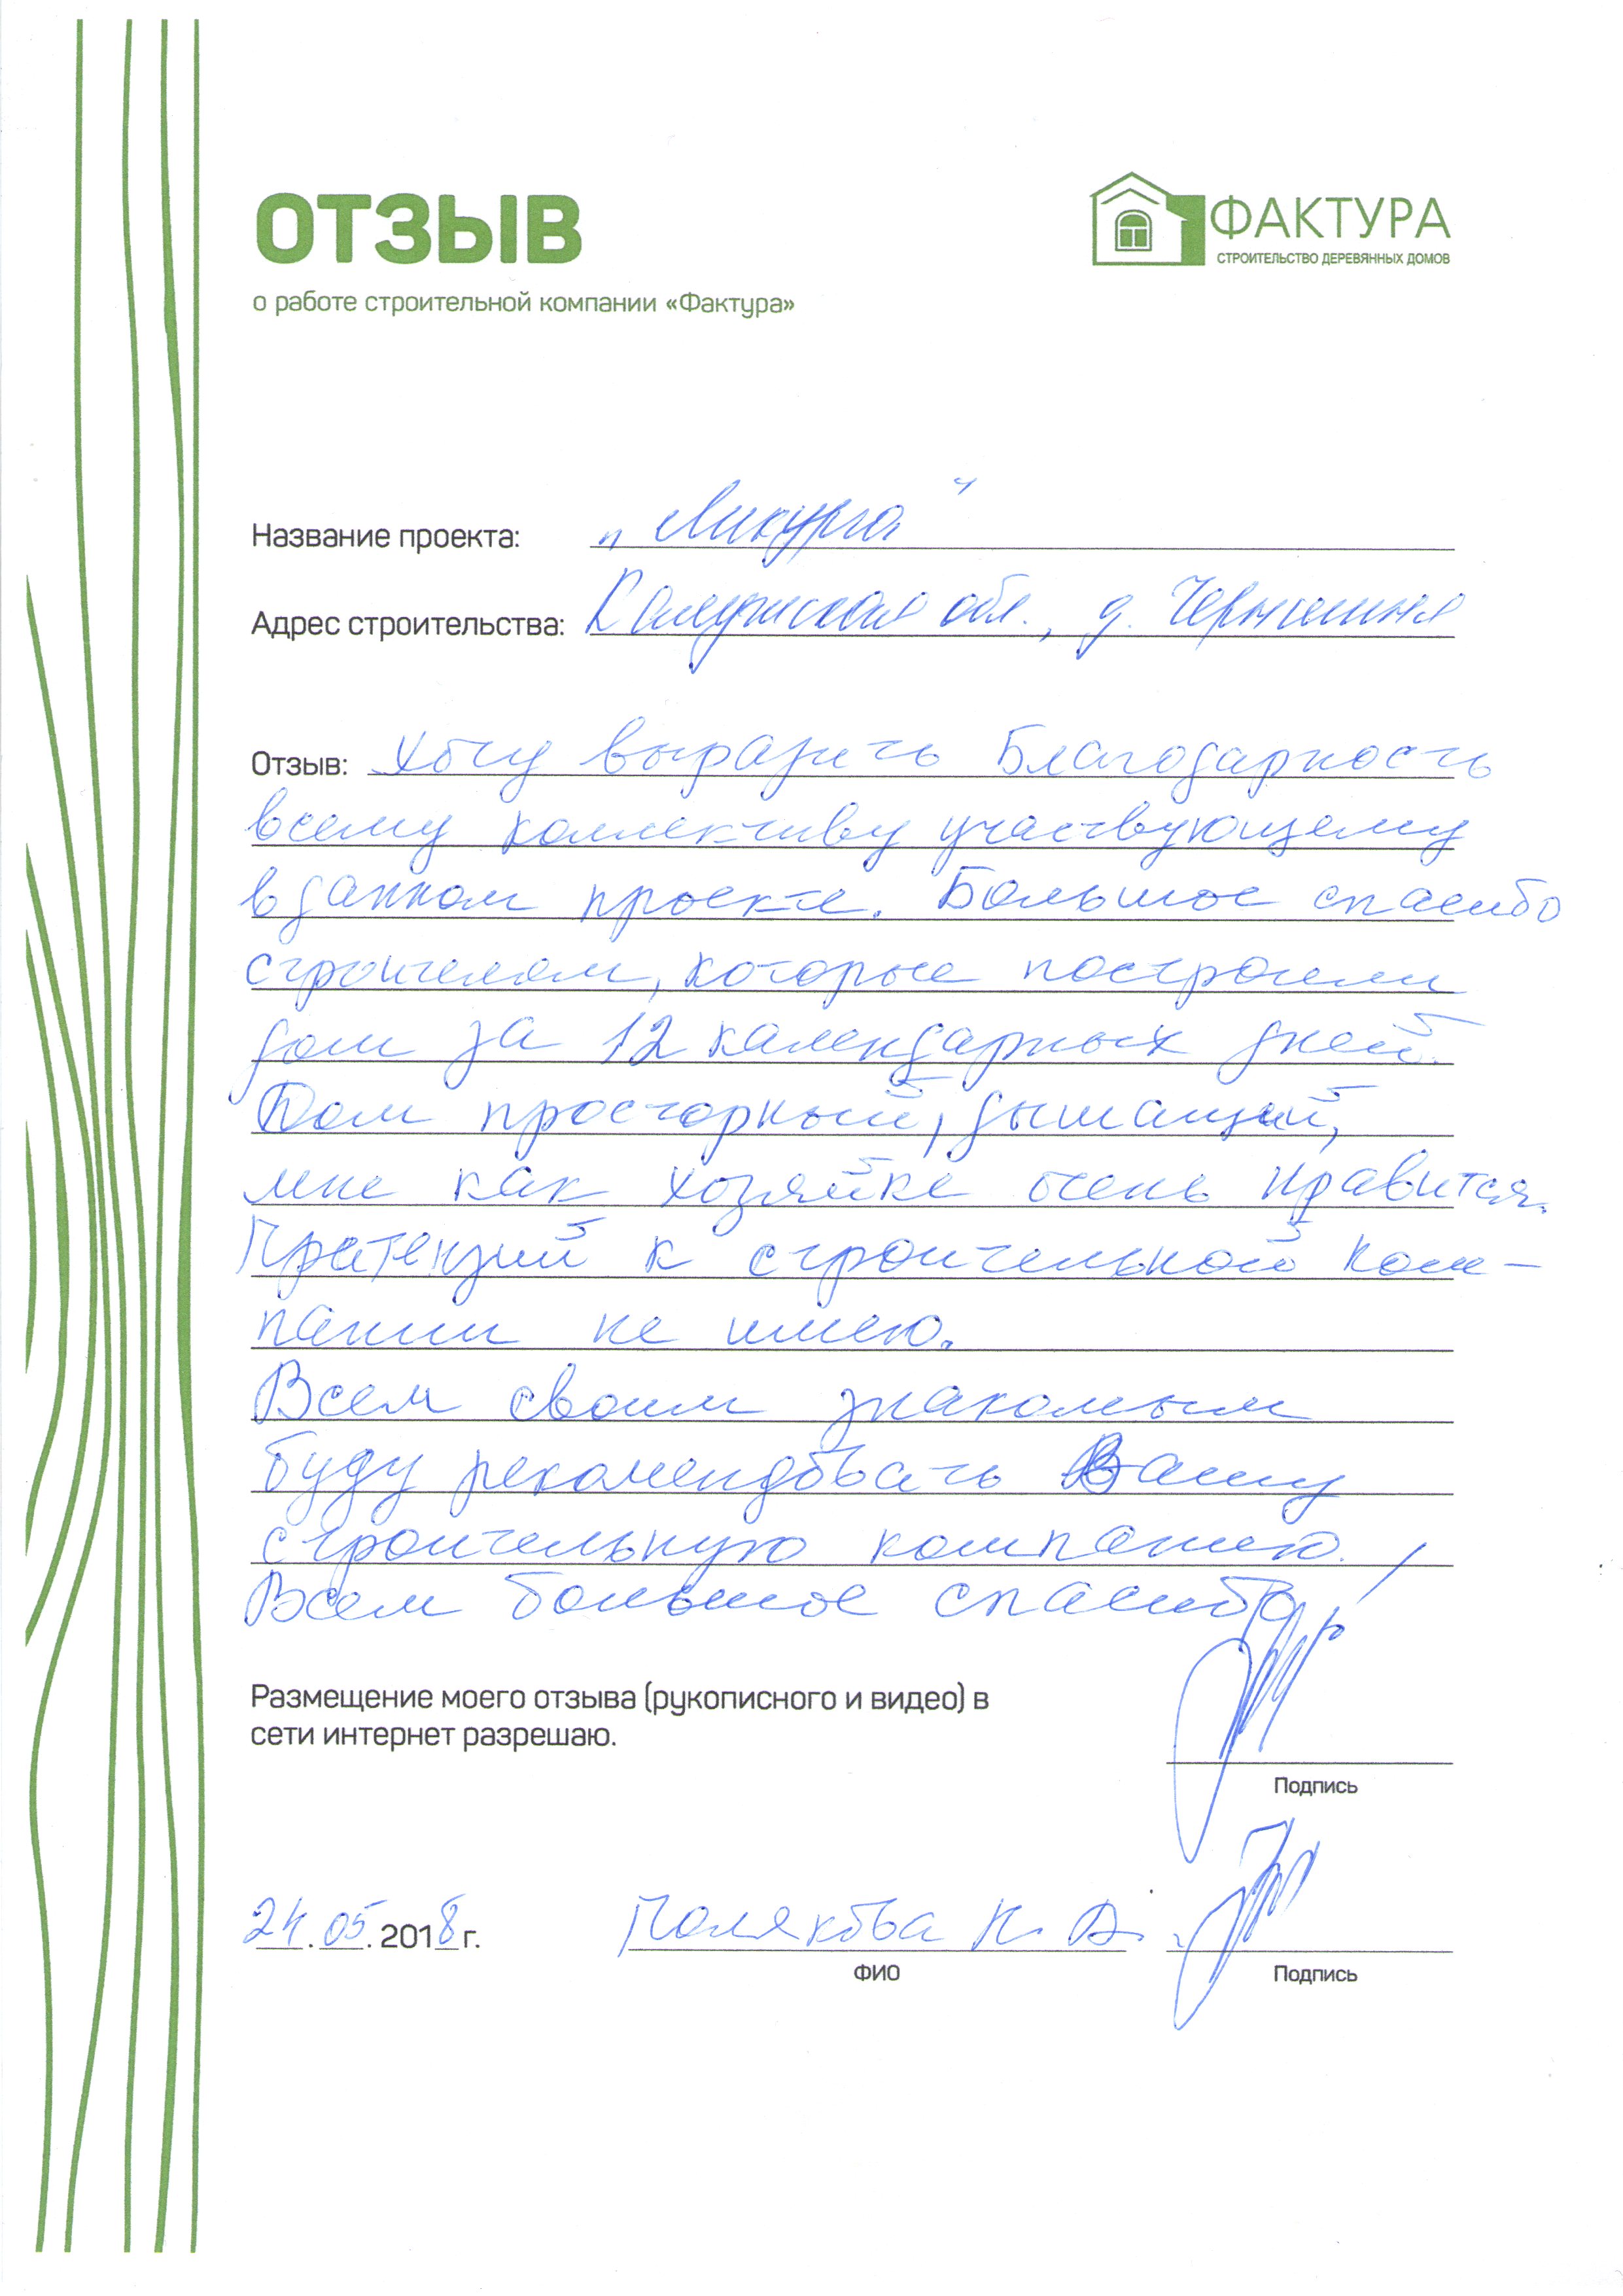 ОТЗЫВ
о работе строительной компании «Фактура»
ФАКТУРА
СТРОИТЕЛЬСТВО ДЕРЕВЯННЫХ ДОМОВ
Название проекта: „Ликурга"
Адрес строительства: Калужская обл., д. Чернишня
Отзыв: Хочу выразить Благодарность
всему коллективу участвующему
в данном проекте. Большое спасибо
строителям, которые построили
дом за 12 календарных дней.
Дом просторный, дышащий,
мне как хозяйке очень нравится.
Претензий к строительной ком-
пании не имею.
Всем своим знакомым
буду рекомендовать Вашу
строительную компанию.
Всем большое спасибо!
Размещение моего отзыва (рукописного и видео) в
сети интернет разрешаю.
Подпись
24.05.2018г. Полякова Н. В.
ФИО Подпись